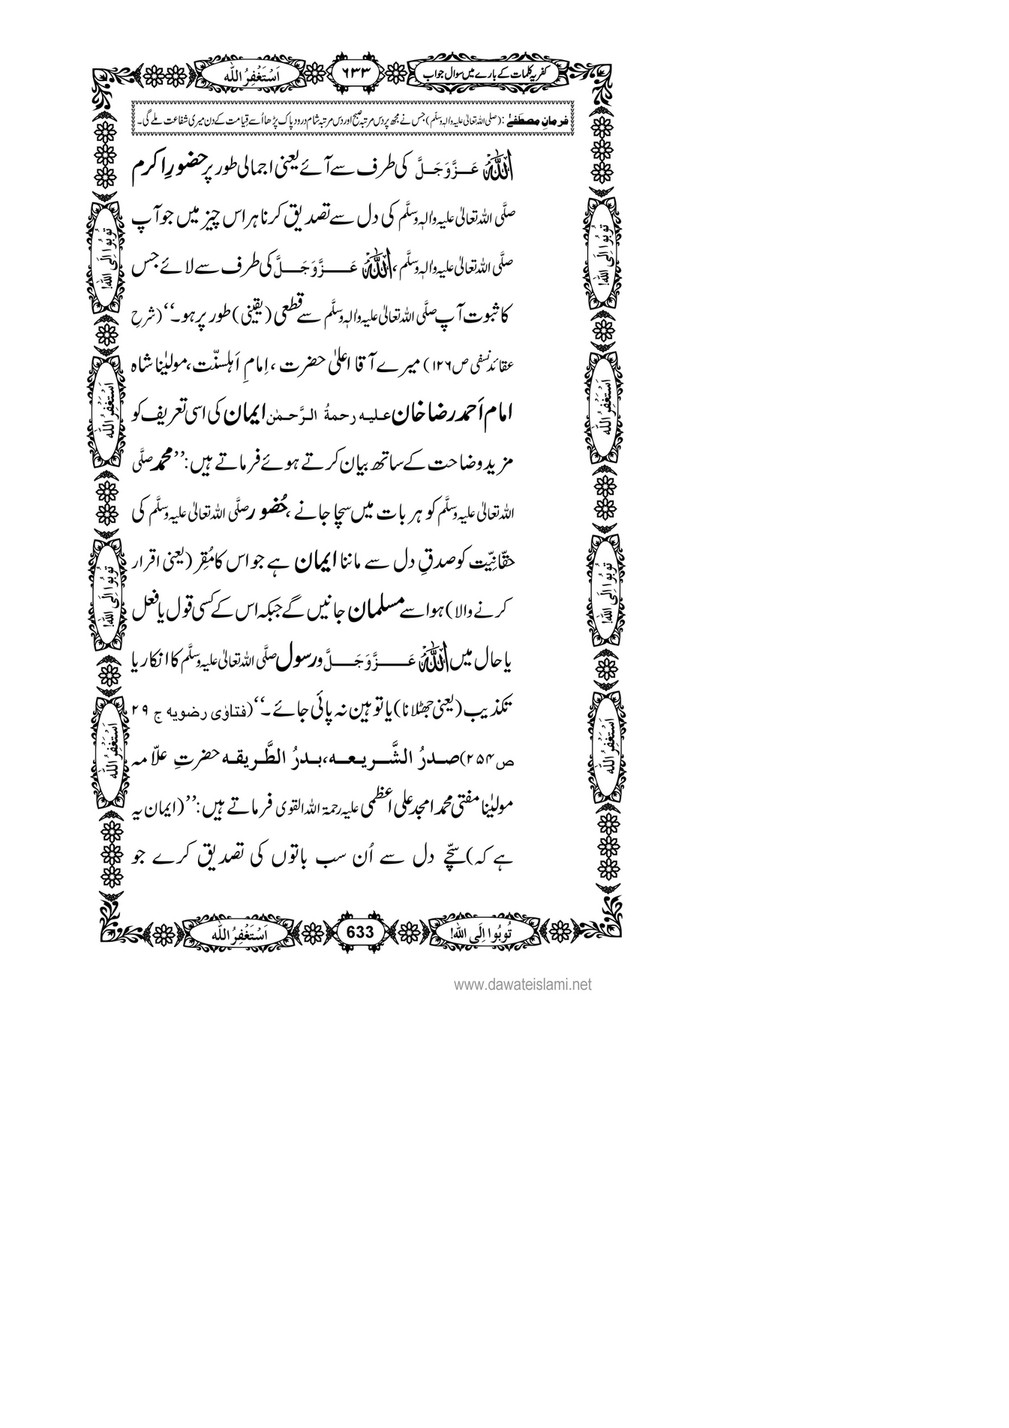 کفریہ کلمات کے بارے میں سوال جواب
۶۳۳
اَسْتَغْفِرُاللّٰه
فرمانِ مصطفےٰ : (صلی اللہ تعالیٰ علیہ والہ وسلّم) جس نے مجھ پر دس مرتبہ صبح اور دس مرتبہ شام درود پاک پڑھا اُسے قیامت کے دن میری شفاعت ملے گی۔
اللّٰہ عَزَّوَجَلَّ کی طرف سے آئے یعنی اجمالی طور پر حضورِ اکرم
صلَّی اللہ تعالیٰ علیہ واٰلہٖ وسلَّم کی دل سے تصدیق کرنا ہر اس چیز میں جو آپ
صلَّی اللہ تعالیٰ علیہ واٰلہٖ وسلَّم، اللّٰہ عَزَّوَجَلَّ کی طرف سے لائے جس
کا ثبوت آپ صلَّی اللہ تعالیٰ علیہ واٰلہٖ وسلَّم سے قطعی (یقینی) طور پر ہو۔‘‘ (شرحِ
عقائد نسفی ص۱۲۶) میرے آقا اعلیٰ حضرت ، اِمامِ اَہلسنّت، مولیٰنا شاہ
امام اَحمد رضا خان علیہ رحمۃُ الرَّحمٰن ایمان کی اسی تعریف کو
مزید وضاحت کے ساتھ بیان کرتے ہوئے فرماتے ہیں:’’محمد صلَّی
اللہ تعالیٰ علیہ وسلَّم کو ہر بات میں سچا جانے، حُضور صلَّی اللہ تعالیٰ علیہ وسلَّم کی
حقّانِیّت کو صدقِ دل سے ماننا ایمان ہے جو اس کا مُقِر (یعنی اقرار
کرنے والا) ہو اسے مسلمان جانیں گے جبکہ اس کے کسی قول یا فعل
یا حال میں اللّٰہ عَزَّوَجَلَّ و رسول صلَّی اللہ تعالیٰ علیہ وسلَّم کا انکار یا
تکذیب (یعنی جھٹلانا) یا توہین نہ پائی جائے۔‘‘ (فتاوٰی رضویہ ج ۲۹
ص ۲۵۴) صدرُ الشَّریعہ، بدرُ الطَّریقہ حضرتِ علّامہ
مولیٰنا مفتی محمد امجد علی اعظمی علیہ رحمۃ اللہ القوی فرماتے ہیں:’’ (ایمان یہ
ہے کہ) سچّے دل سے اُن سب باتوں کی تصدیق کرے جو
تُوبُوا اِلَی اللّٰه!
اَسْتَغْفِرُاللّٰه
تُوبُوا اِلَی اللّٰه!
اَسْتَغْفِرُاللّٰه
تُوبُوا اِلَی اللّٰه!
اَسْتَغْفِرُاللّٰه
تُوبُوا اِلَی اللّٰه!
اَسْتَغْفِرُاللّٰه
تُوبُوا اِلَی اللّٰه!
633
اَسْتَغْفِرُاللّٰه
www.dawateislami.net